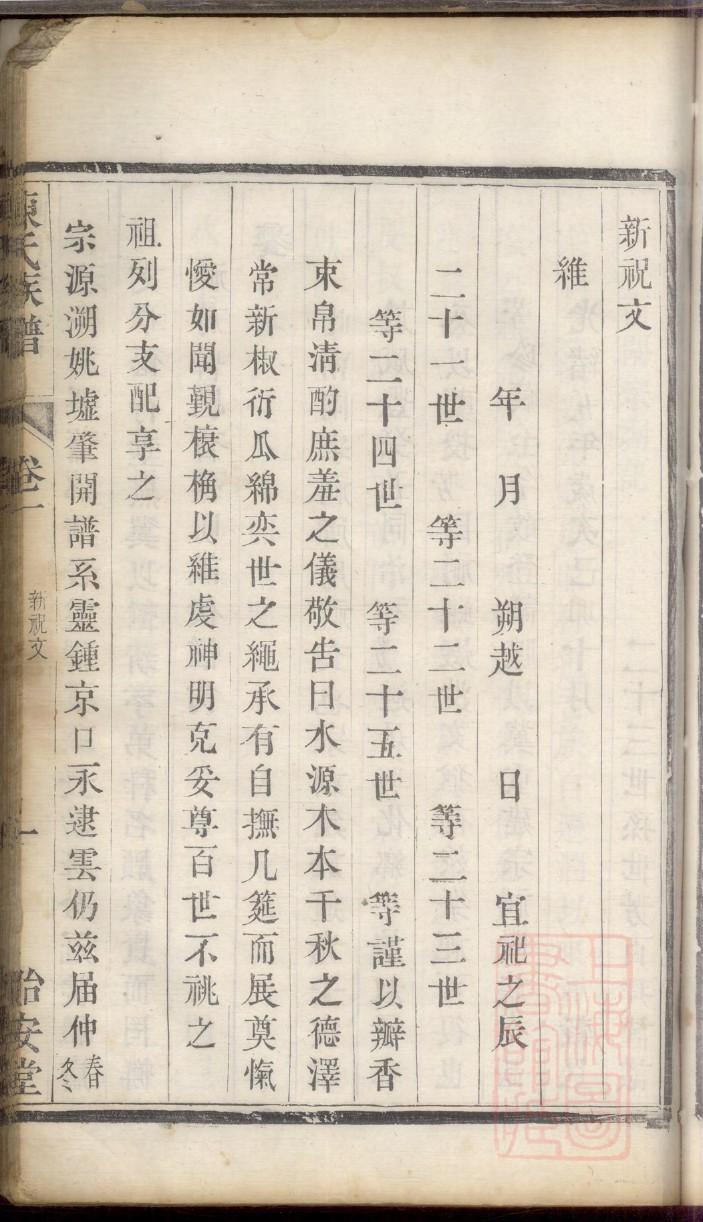 新祝文
維
年 月 朔越 日 宜祀之辰
二十一世 等二十二世 等二十三世
等二十四世 等二十五世 等謹以瓣香
束帛清酌庶羞之儀敬告曰水源木本千秋之德澤
常新椒衍瓜綿奕世之繩承有自撫几筵而展奠愾
愯如聞觀榱桷以維虔神明克妥尊百世不祧之
祖列分支配享之
宗源溯姚墟肇開譜系靈鍾京口永逮雲仍兹届仲春冬
陳氏族譜 卷一 新祝文 一 治安堂